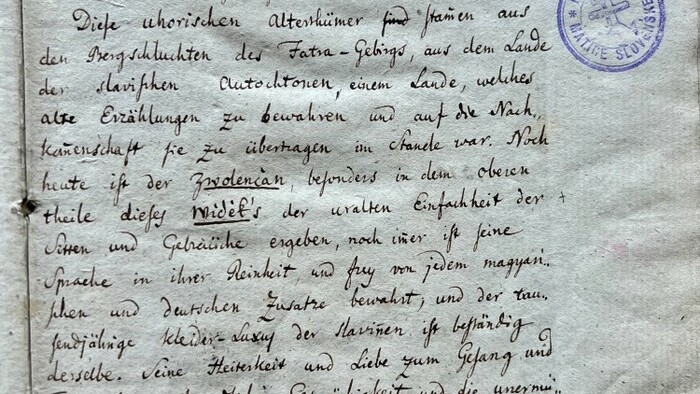 Diese uhorischen Alterthümer sind stam̄en aus
den Bergschluchten des Fatra-Gebirgs, aus dem Lande
der slavischen Autochtonen, einem Lande, welches
alte Erzählungen zu bewahren und auf die Nach-
kom̄enschaft sie zu übertragen im Stande war. Noch
heute ist der Zwolenčan, besonders in dem oberen
theile dieses Widék's der uralten Einfachheit der
Sitten und Gebräuche ergeben, noch im̄er ist seine
Sprache in ihrer Reinheit, und frey von jedem magyari-
schen und deutschen Zusatze bewahrt, und der tau-
sendjährige Kleider-Luxus der Slavin̄en ist beständig
derselbe. Seine Heiterkeit und Liebe zum Gesang und
und die unermü-
MATICE SLOVENSKEJ